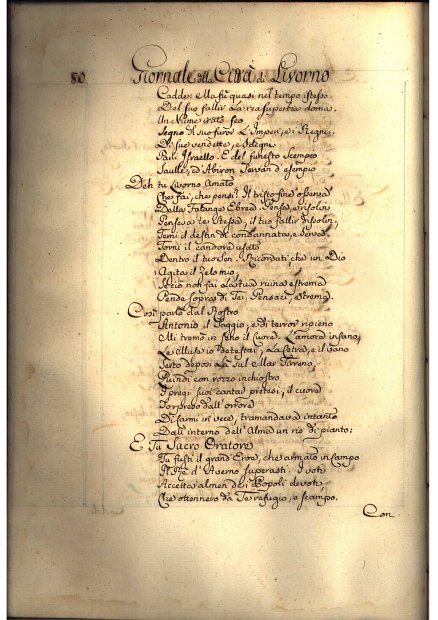 80 Giornale della Città di Livorno
Cadde: e Ma fù quasi nel tempo istesso
Del suo fallir La rea superbia doma.
Un Nume irato feo
Segno Al suo furor L'Imperi, e i Regni.
Di sue vendette, e sdegni
Parli Israello. E del funesto Scempio
Saulle, ed Abiron servan d'esempio
Deh tu Livorno Amato
Che fai, che pensi? Il tristo fine osserva
Della Falange Ebrea. Pensa,
Pensa a te stessa, il tuo fallir
Temi il destin di condannata, e serva.
Torni il candore usato
Dentro il tuo sen. Ricordati, che un Dio
Agita il Zelo mio,
Acciò non fai La tua ruina estrema
Pende sopra di Te. Pensaci, e trema.
Così parlò dal Rostro
Antonio il Saggio, e di terror ripieno
Mi tremò in seno il Cuore. L'amore insano,
Le Muse io detestai, La Cetra, e il vano
Serto deposi Là sul Mar Tirreno,
Quindi con rozzo inchiostro
I pregi suoi cantar pretesi, il cuore
Sorpreso dall'orrore
Di Carmi in vece, tramandava intanto
Dall'interno dell'Alma un rio di pianto:
E Tu Sacro Oratore
Tu fusti il grand'Eroe, che armato in campo
Il Rè d'Averno superasti. I voti
Accetta almen dei Popoli devoti,
Che ottennero da Te refugio, e scampo.
Con